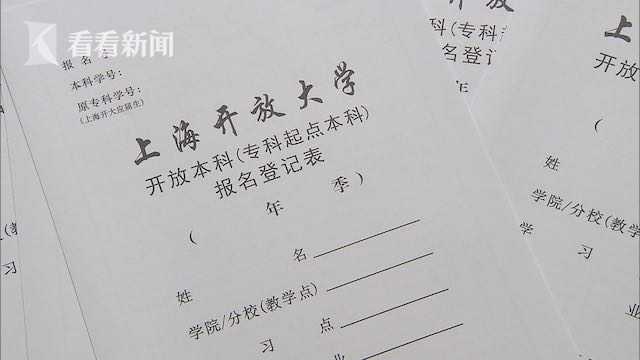 看看新闻
报名
本科学号:
原专科学号:
(上海开大应届生)
上海开放大学
开放本科(专科起点本科)
报名登记表
( 年 季)
姓 名
学院/分校(教学点)
习 点
业
科(专科起
名登记
年
上
开放
(
姓
学院/分校(教学
学 习
业
姓
(教学
习